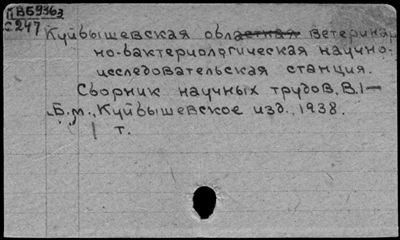 ПВ69363
С247
Куйбышевская областная ветеринар
но-бактериологическая научно-
исследовательская станция.
Сборник научных трудов, В.1—
Б.м., Куйбышевское изд., 1938.
т.